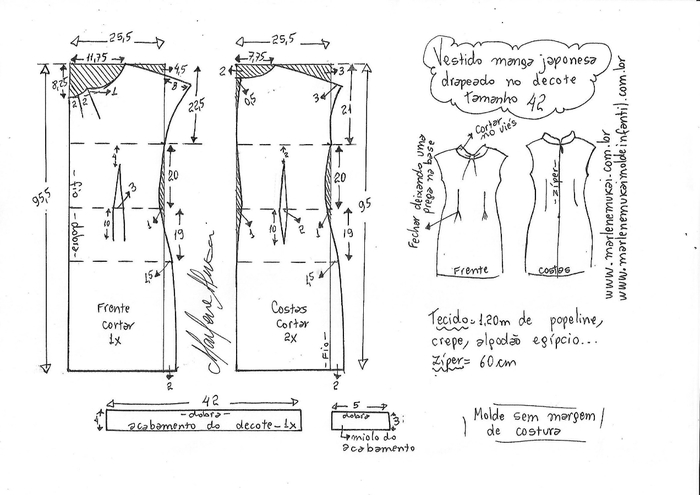 25,5
11,75
4,5
8
8,25
2
2
1
22,5
95,5
4
20
3
10
1
19
1,5
-dobra- 0,5
Frente
cortar
1x
2
25,5
7,75
2
3
0,5
3
21
2
20
10
2
1
19
1,5
95
Costas
Cortar
2x
-Fio-
2
Marlene Mukai
42
4
-dobra-
acabamento do decote-1x
5
dobra
3
miolo do
acabamento
Vestido manga japonesa
drapeado no decote
tamanho 42
Cortar
no viés
Fechar deixando uma
prega na base
-Zíper-
Frente
Costas
www.marlenemukai.com.br
www.marlenemukaimoldeinfantil.com.br
Tecido=1,20m de popeline,
crepe, algodão egípcio...
Zíper= 60.cm
Molde sem margem
de costura